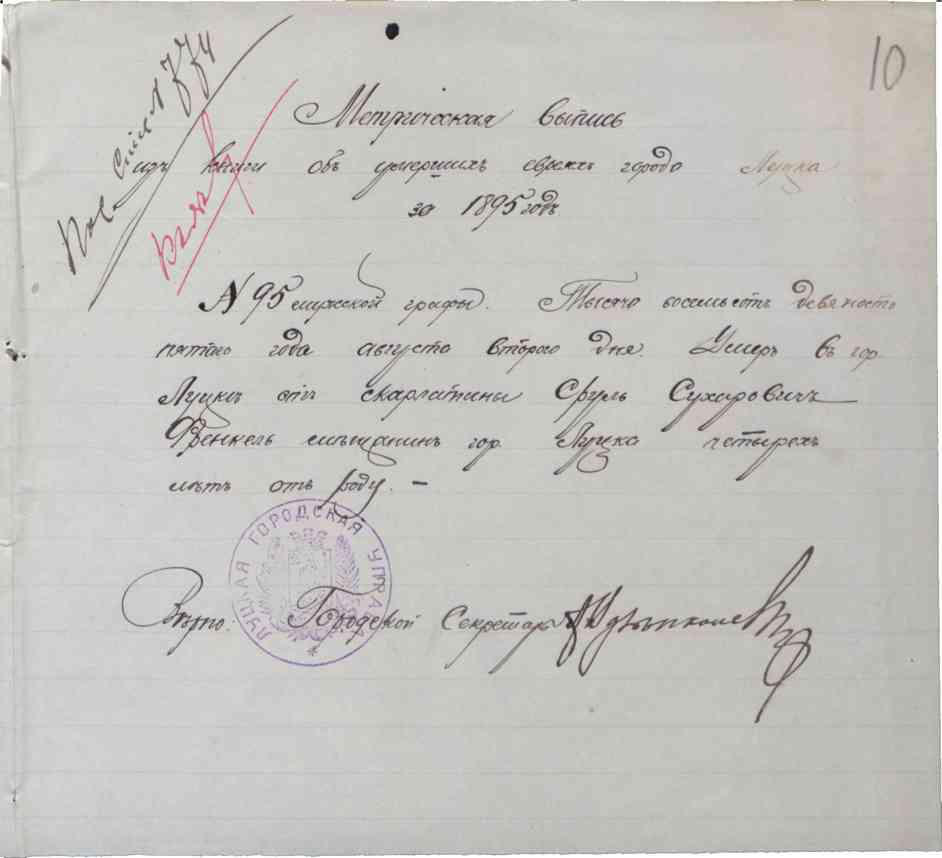 10
Метрическая выпись
изъ книги объ умершихъ евреяхъ города Луцка
за 1895 годъ
N 95 мужской графы. Тысяча восемьсотъ девяносто
пятаго года августа второго дня. Умеръ въ гор.
Луцкѣ отъ скарлатины Сруль Сухаровичъ
Френкель мѣщанинъ гор. Луцка четырехъ
лѣтъ отъ роду. —
ЛУЦКАЯ ГОРОДСКАЯ УПРАВА
Вѣрно: Городской Секретарь